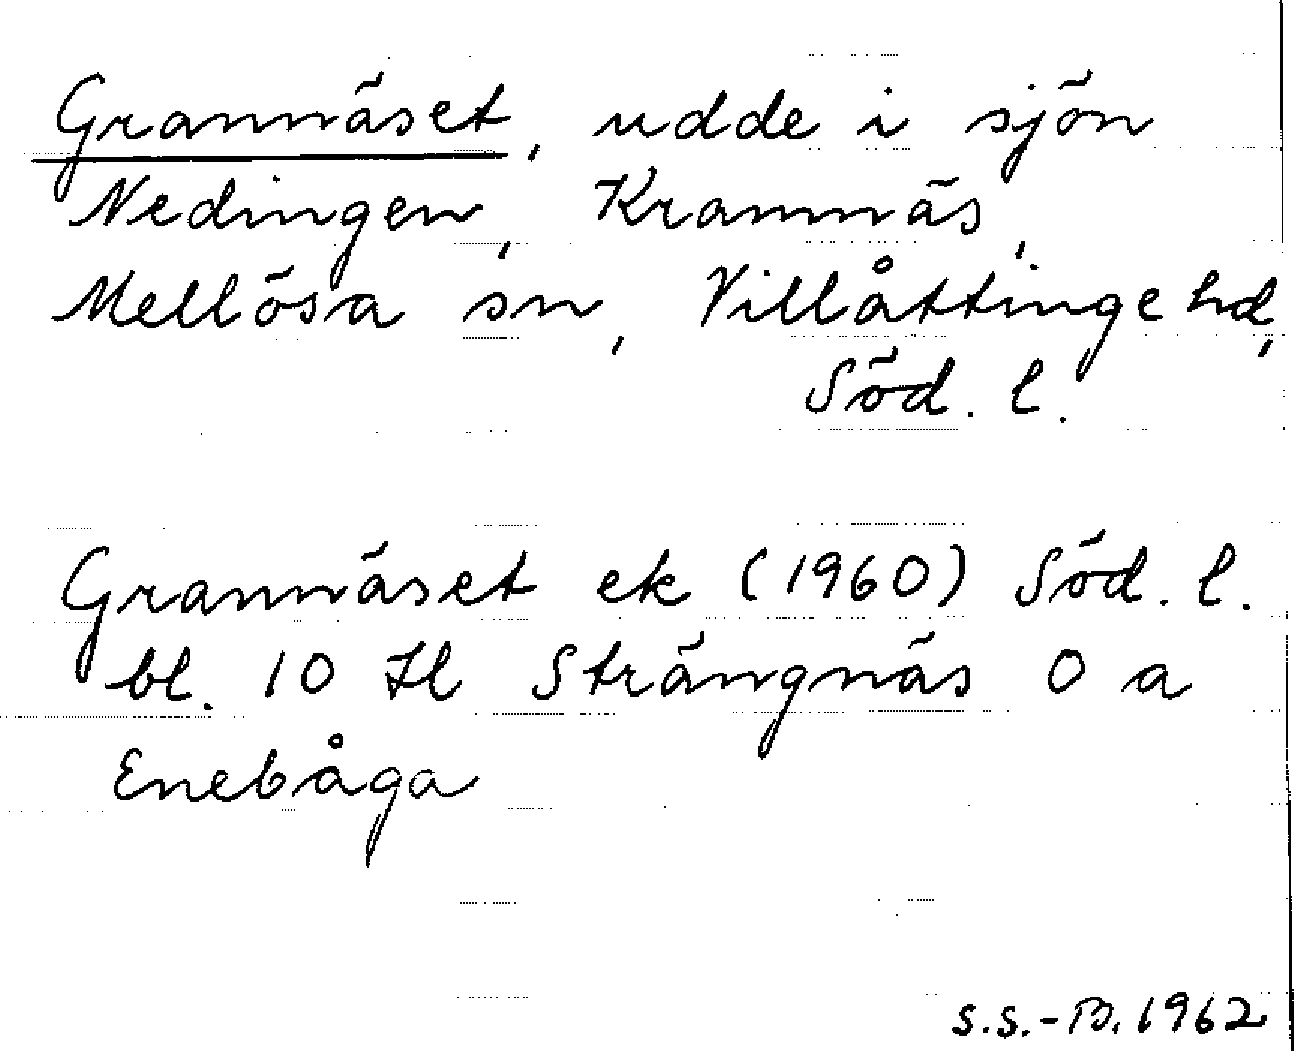 Grannäset, udde i sjön
Nedingen, Kramnäs,
Mellösa sn, Villåttinge hd,
Söd. l.
Grannäset ek (1960) Söd. l.
bl. 10 Il Strängnäs 0 a
Enebåga
S.S.-B. 1962